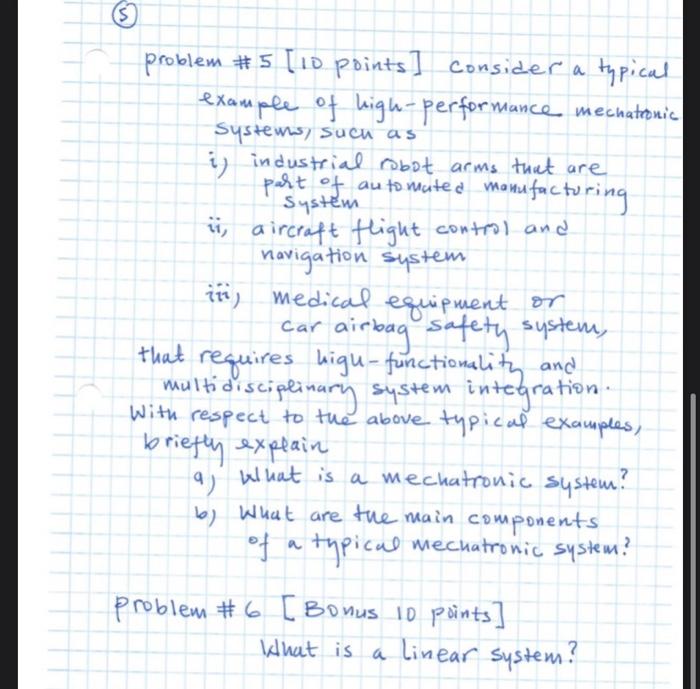 5
problem #5 [10 points] Consider a typical
example of high-performance mechatronic
systems, such as
i) industrial robot arms that are
part of automated manufacturing
system
ii) aircraft flight control and
navigation system
iii) medical equipment or
car airbag safety system,
that requires high-functionality and
multidisciplinary system integration.
With respect to the above typical examples,
briefly explain
a) What is a mechatronic system?
b) What are the main components
of a typical mechatronic system?
problem #6 [Bonus 10 points]
What is a linear system?